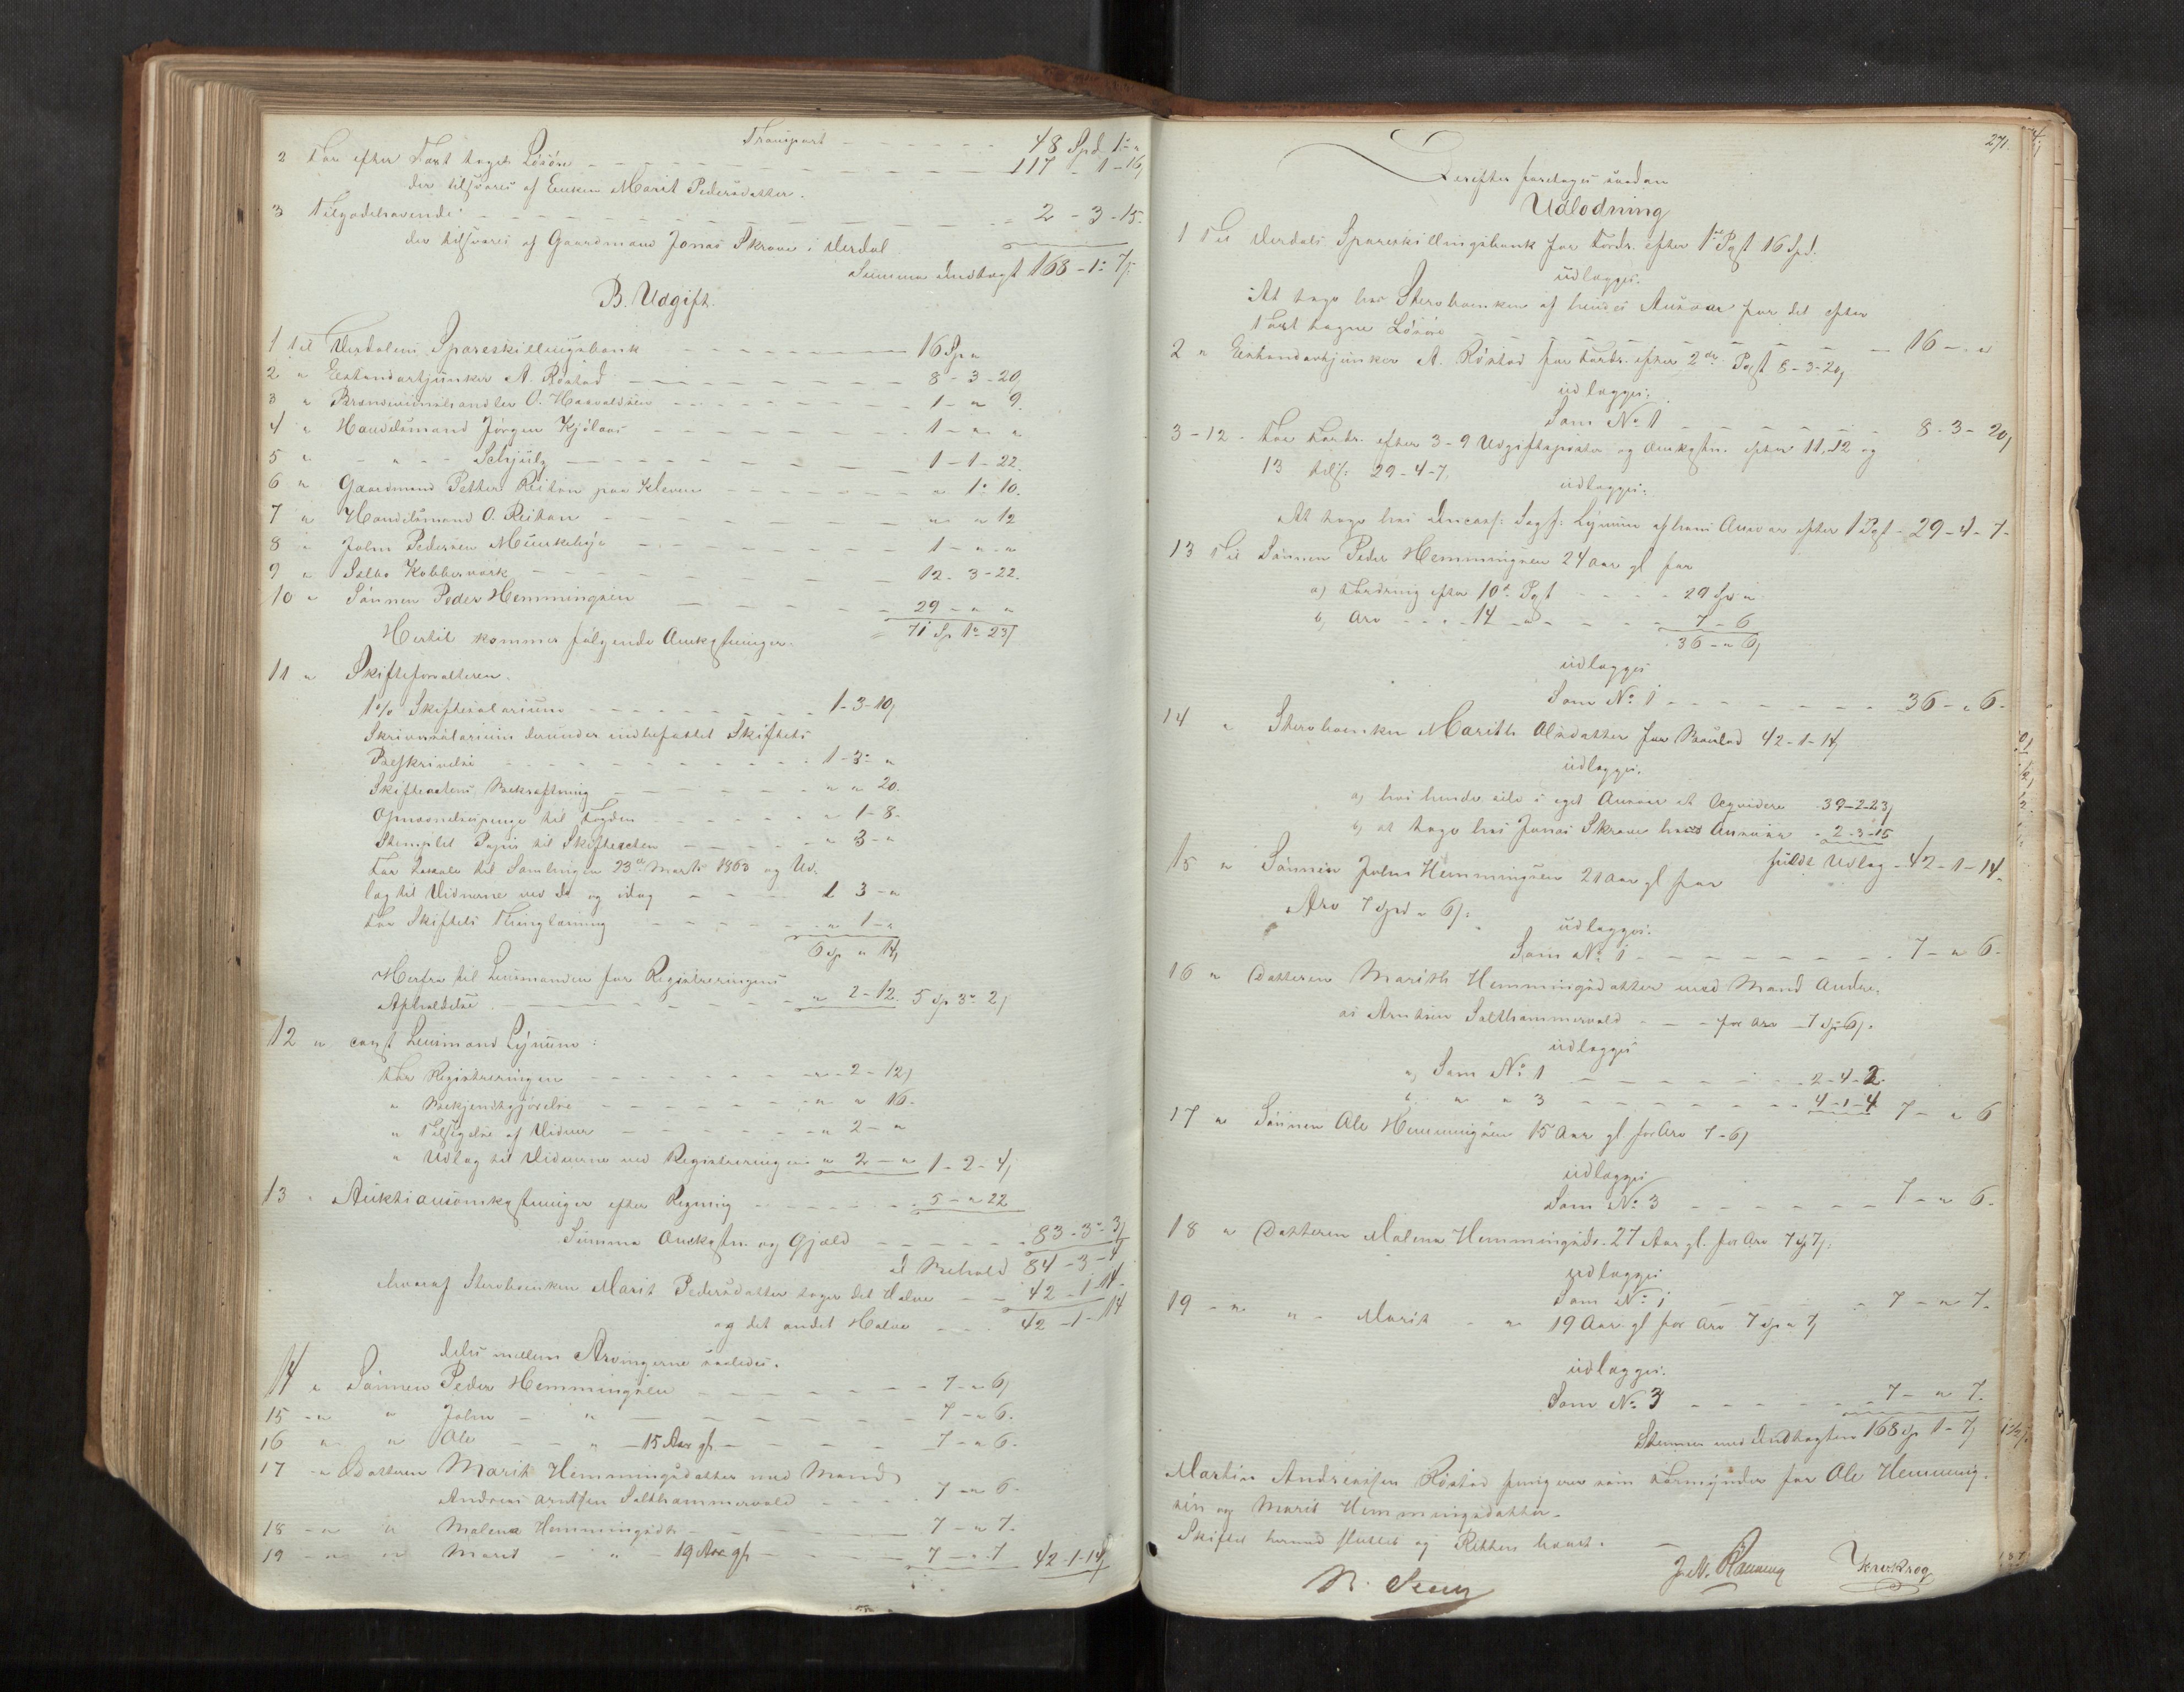 Transport - - - - - - 48 Spd 1 - "
2 For efter Taxt tagen Løsøre - - - - - 117 - 1 - 16
der tilsvares af Enken Marit Pedersdatter.
3 Tilgodehavende - - - - - 2 - 3 - 15.
der tilsvares af Gaardmand Jonas Skrove i Verdal
Summa Indtægt 168 - 1 - 7
B. Udgift.
1 Til Verdalens Spareskillingsbank - - - 16 Sp "
2 " Estandartjunker A. Røstad - - - 8 - 3 - 20
3 " Brændeviinshandler O. Havaldsen - - - 1 - " 9
4 " Handelsmand Jørgen Kjølaas - - - 1 - " - "
5 " - " - Schjulz - - - 1 - 1 - 22.
6 " Gaardmand Petter Reitan paa Kleven - - - " 1 - 10.
7 " Handelsmand O. Reitan - - - " " 12
8 " John Pedersen Munkebye - - - 1 - " - "
9 " Selbo Kobberværk - - - 12 - 3 - 22.
10 " Sønnen Peder Hemmingsen - - - 29 - " "
71 Sp 1 - 23
Hertil kommer følgende Omkostninger.
11 " Skifteforvalteren.
1% Skiftesalarium - - - 1 - 3 - 10
Skriversalarium derunder indbefattet Skiftets
Beskrivelse - - - 1 - 3 - "
Skifteactens Bekræftning - - - " " 20.
Opnævnelsespenge til Fogden - - - " 1 - 8 -
Stemplet Papir til Skifteacten - - - " 3 - "
For Locale til Samlingen 23de Marts 1863 og Ud-
læg til Vidnerne ved da og idag - - - 1 3 - "
For Skiftets Thinglæsning - - - " 1 - "
6 Sp " 14
Herfra til Lensmanden for Registreringens
Afholdelse - - - " 2 - 12. 5 Sp 3 - 2
12 " const Lensmand Lynum:
For Registreringen - - - " - 2 - 12
" Bekjendtgjørelse - - - " " 16.
" Tilsigelse af Vidner - - - " 2 - "
" Udlæg til Vidnerne ved Registreringen " 2 - " 1 - 2 - 4
13 " Auktionsomkostninger efter Regning - - - 5 - " 22
Summa Omkostn. og Gjæld - - - 83 - 3 - 3
al Behold 84 - 3 - 4
hvoraf Stervboenken Marit Pedersdatter tager det Halve - - 42 - 1 - 14
og det andet Halve - - - 42 - 1 - 14
deles mellem Arvingerne saaledes.
14 " Sønnen Peder Hemmingsen - - - 7 - " 6
15 - " " John - " - - - 7 - " 6.
16 " " Ole - " - 15 Aar gl. - - - 7 - " 6 -
17 - " Datteren Marit Hemmingsdatter med Mand
Andreas Arntsen Salthammervald - - - 7 - " 6 -
18 - " " Malena Hemmingsdtr - - - 7 - " 7 -
19 - " " Marit - " - 19 Aar gl. - - - 7 - " 7 42 - 1 - 14
271.
Derefter foretages saadan
Udlodning
1 Til Verdals Spareskillingsbank for Fordr. efter 1ste Post 16 Spd.
udlægges.
At tage hos Stervboenken af hendes Ansvar for det efter
Taxt tagne Løsøre - - - 16 - "
2 " Estandartjunker A. Røstad for Fordr. efter 2den Post 8 - 3 - 20
udlægges.
Som No 1 - - - 8 - 3 - 20
3 - 12 - For Fordr. efter 3 - 9 Udgiftsposter og Omkostn. efter 11, 12 og
13 tils: 29 - 4 - 7.
udlægges.
At tage hos Incass: Sagf: Lynum af hans Ansvar efter 1 Post - 29 - 4 - 7 -
13 Til Sønnen Peder Hemmingsen 24 Aar gl for
a) Fordring efter 10de Post - - - 29 Sp "
b) Arv - - - 14 " - - - 7 - 6
36 - " 6
udlægges
Som No 1 - - - 36 - " 6 -
14 " Stervboenken Marith Olsdatter for Boeslod 42 - 1 - 14
udlægges.
a) hos hende selv i eget Ansvar at liqvidere - 39 - 2 - 23
b) at tage hos Jonas Skrove hans Ansvar - 2 - 3 - 15
fuldt Udlæg - 42 - 1 - 14.
15 " Sønnen John Hemmingsen 21 Aar gl for
Arv 7 Spd " 6.
udlægges.
Som No 1 - - - 7 - " 6 -
16 " Datteren Marith Hemmingsdatter med Mand Andre-
as Arntsen Salthammervald - - - for Arv - 7 Sp 6.
udlægges
a) Som No 1 - - - 2 - 4 - 2 -
b " " 3 - - - 4 - 1 - 4 7 - " 6
17 " Sønnen Ole Hemmingsen 15 Aar gl for Arv 7 - 6
udlægges
Som No 3 - - - 7 - " 6 -
18 " Datteren Malena Hemmingsdr. 27 Aar gl. for Arv 7 Sp 7.
udlægges
Som No 1 - - - 7 - " 7 -
19 - " " - Marit - " 19 Aar gl for Arv 7 Sp " 7
udlægges.
Som No 3 - - - 7 - " 7.
Stemmer med Indtægten 168 Sp 1 - 7
Martin Andreassen Røstad fungerer som Formynder for Ole Hemming-
sen og Marit Hemmingsdatter.
Skiftet hermed sluttet og Retten hævet.
J. N. Rønning